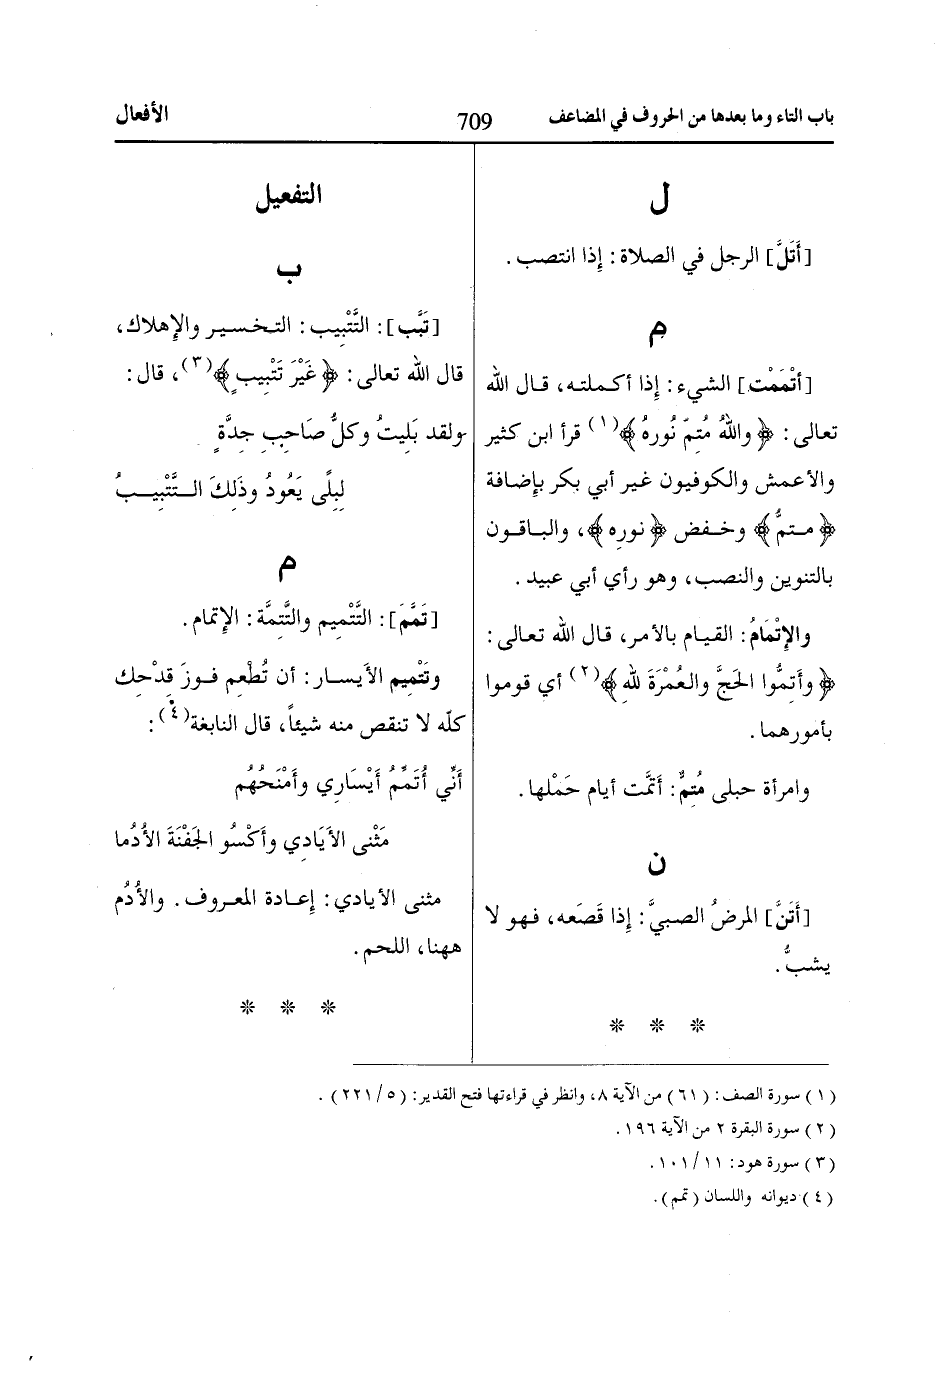 باب التاء وما بعدها من الحروف في المضاعف
709
الأفعال
ل
[أَتَلَّ] الرجل في الصلاة: إذا انتصب.
م
[أَتْمَمْت] الشيء: إذا أكملته، قال الله
تعالى: ﴿واللهُ مُتِمّ نُورِهُ﴾(١) قرأ ابن كثير
والأعمش والكوفيون غير أبي بكر بإضافة
﴿متمُّ﴾ وخفض ﴿نوره﴾، والباقون
بالتنوين والنصب، وهو رأي أبي عبيد.
والإِتْمَامُ: القيام بالأمر، قال الله تعالى:
﴿وأَتِمُّوا الحَجَّ والعُمْرَةَ لله﴾(٢) أي قوموا
بأمورهما.
وامرأة حبلى مُتِمٌّ: أَتَمَّت أيام حَمْلها.
ن
[أَتَنَّ] المرضُ الصبيَّ: إذا قَصَعَه، فهو لا
يشبُّ.
* * *
التفعيل
ب
[تَبَّب]: التَّتْبِيب: التخسير والإهلاك،
قال الله تعالى: ﴿غَيْرَ تَتْبِيبٍ﴾(٣)، قال:
ولقد بَلِيتُ وكلُّ صَاحِبِ جِدَّةٍ
لِبِلًى يَعُودُ وذَلِكَ التَّتْبِيبُ
م
[تَمَّمَ]: التَّتْمِيم والتَّتِمَّة: الإتمام.
وتَتْمِيم الأيسار: أن تُطْعِم فوزَ قِدْحِك
كلّه لا تنقص منه شيئاً، قال النابغة(٤):
أَنِّي أُتَمِّمُ أَيْسَارِي وأَمْنَحُهُم
مَثْنى الأَيَادِي وأَكْسُو الجَفْنَةَ الأُدُما
مثنى الأيادي: إعادة المعروف. والأُدُم
ههنا، اللحم.
* * *
(١) سورة الصف: (٦١) من الآية ٨، وانظر في قراءتها فتح القدير: (٥/٢٢١).
(٢) سورة البقرة ٢ من الآية ١٩٦.
(٣) سورة هود: ١١/١٠١.
(٤) ديوانه واللسان (تمم).